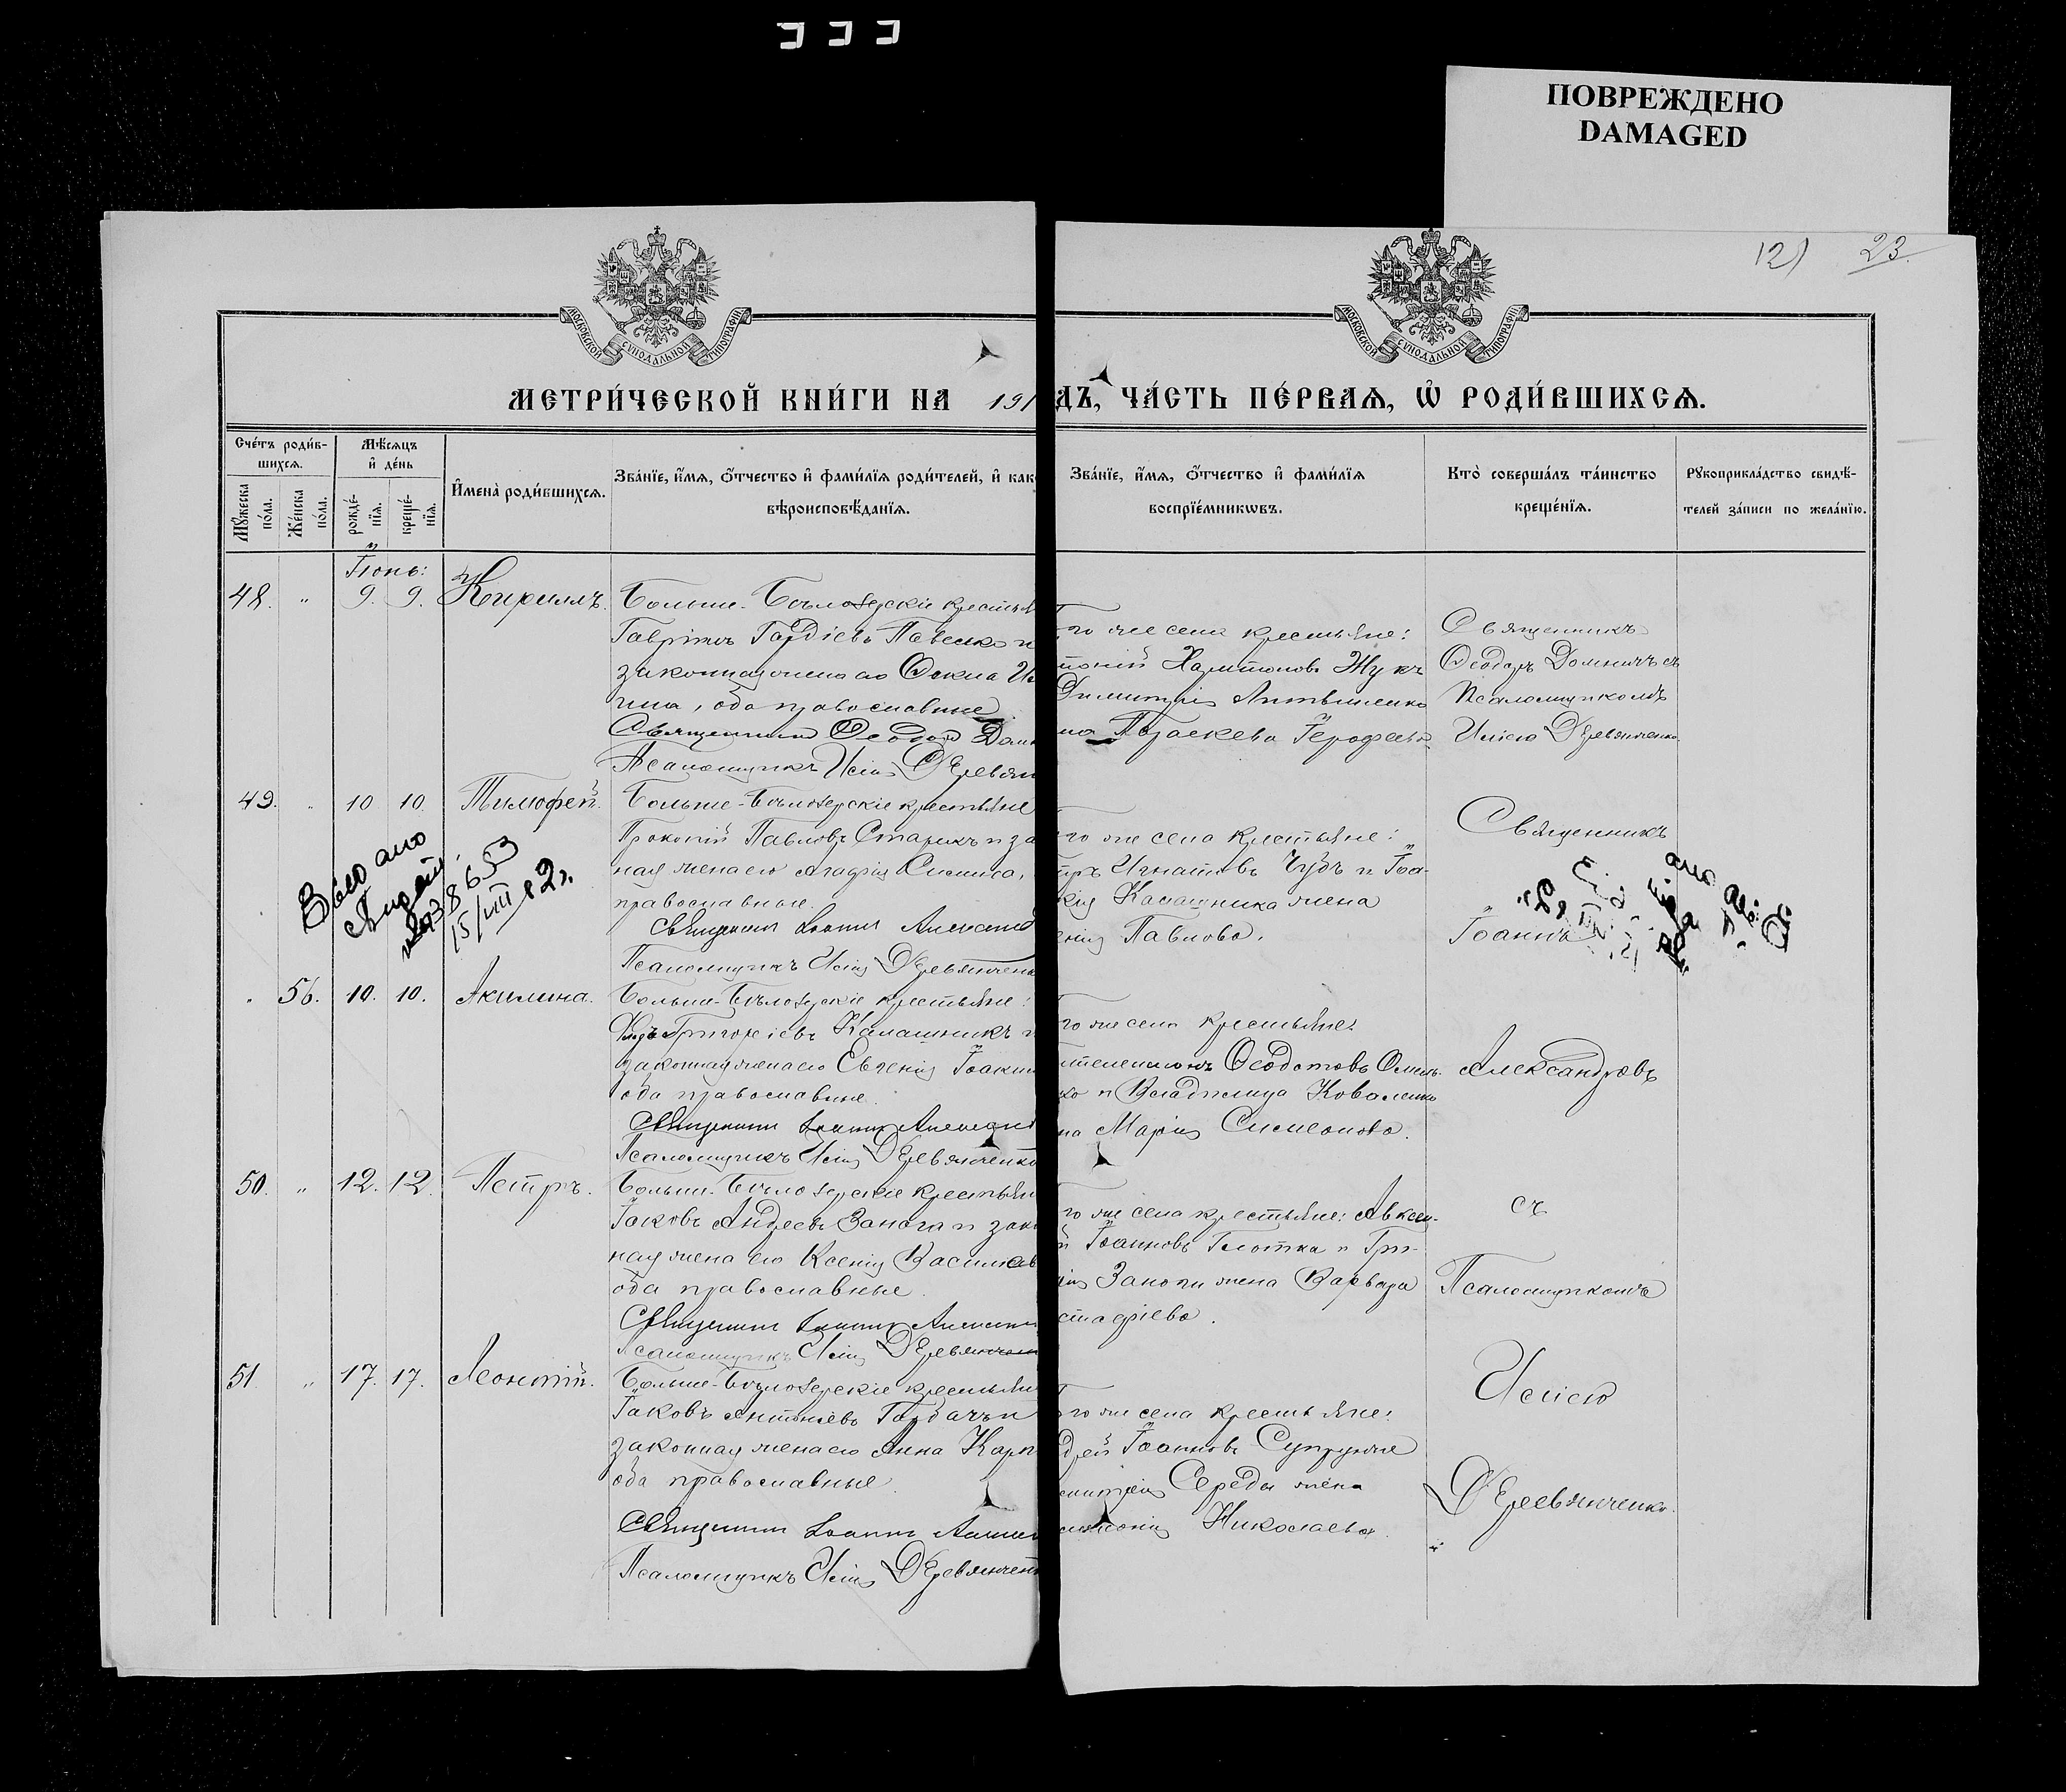 ПОВРЕЖДЕНО
DAMAGED
12) 23.
МОСКОВСКОЙ СУНОДАЛЬНОЙ ТИПОГРАФІИ
МОСКОВСКОЙ СУНОДАЛЬНОЙ ТИПОГРАФІИ
МЕТРИ́ЧЕСКОЙ КНИ́ГИ НА 191
ДЪ, ЧА́СТЬ ПЕ́РВАѦ, Ѡ҆ РОДИ́ВШИХСѦ.
Сче́тъ роди́в-
шихсѧ.
Мꙋ́жеска по́ла.
Же́нска по́ла.
Мѣ́сѧцъ
и҆ де́нь
рожде́-
нїѧ.
креще́-
нїѧ.
И҆мена̀ роди́вшихсѧ.
Зва́нїе, и҆́мѧ, ѻ҆́тчество и҆ фами́лїѧ роди́телей, и҆ как
вѣроисповѣ́данїѧ.
Зва́нїе, и҆́мѧ, ѻ҆́тчество и҆ фами́лїѧ
воспрїе́мникѡвъ.
Кто̀ соверша́лъ та́инство
креще́нїѧ.
Рꙋкоприкла́дство свидѣ́-
телей за́писи по жела́нїю.
Іюнь:
48. " 9. 9. Кириллъ. Больше-Бѣлозерскіе крестья
Гавріилъ Гордіевъ Павенко и
законная жена его Ѳекла
на, оба православные
Священникъ Ѳеодоръ Дом
Псаломщикъ Илія Деревян
го же села крестьяне:
Харитоновъ Жукъ
Димитрія Литвиненко
на Параскева Іероѳеева
Священникъ
Ѳеодоръ Домничъ съ
Псаломщикомъ
Иліею Деревянченко
49. " 10 10. Тимоѳей. Больше-Бѣлозерскіе крестьяне
Прокопій Павловъ Старикъ и за
ная жена его Агафія
православные.
Священникъ Іоаннъ Александ
Псаломщикъ Илія Деревянченк
го же села крестьяне:
Игнатовъ Чубъ и Іоа-
кія Калашника жена
енія Павлова.
Священникъ
Іоаннъ
15/VIII 82 г.
" 56. 10. 10. Акилина. Больше-Бѣлозерскіе крестьяне:
Григоріевъ Калашникъ и
законная жена его Евгенія Іоаки
оба православные.
Священникъ Іоаннъ Александ
Псаломщикъ Илія Деревянченко
го же села крестьяне:
нтелеимонъ Ѳеодотовъ Омель-
ко и Владимира Коваленко
на Марія Симеонова.
Александровъ
50. " 12. 12. Петръ. Больше-Бѣлозерскіе крестьян
Іаковъ Андреевъ Занога и зако
ная жена его Ксенія Василіев
оба православные.
Священникъ Іоаннъ Алексан
Псаломщикъ Илія Деревянчен
го же села крестьяне: Авксен-
й Іоанновъ Глотка и Гри-
рія Заноги жена Варвара
стафіева.
съ
Псаломщикомъ
51 " 17. 17. Леонтій. Больше-Бѣлозерскіе крестьян
Іаковъ Антоніевъ Горбачъ и
законная жена его Анна Карп
оба православные.
Священникъ Іоаннъ Алексан
Псаломщикъ Илія Деревянчен
го же села крестьяне:
дрей Іоанновъ Супруня
Середы жена
Николаева.
Иліею
Деревянченко.